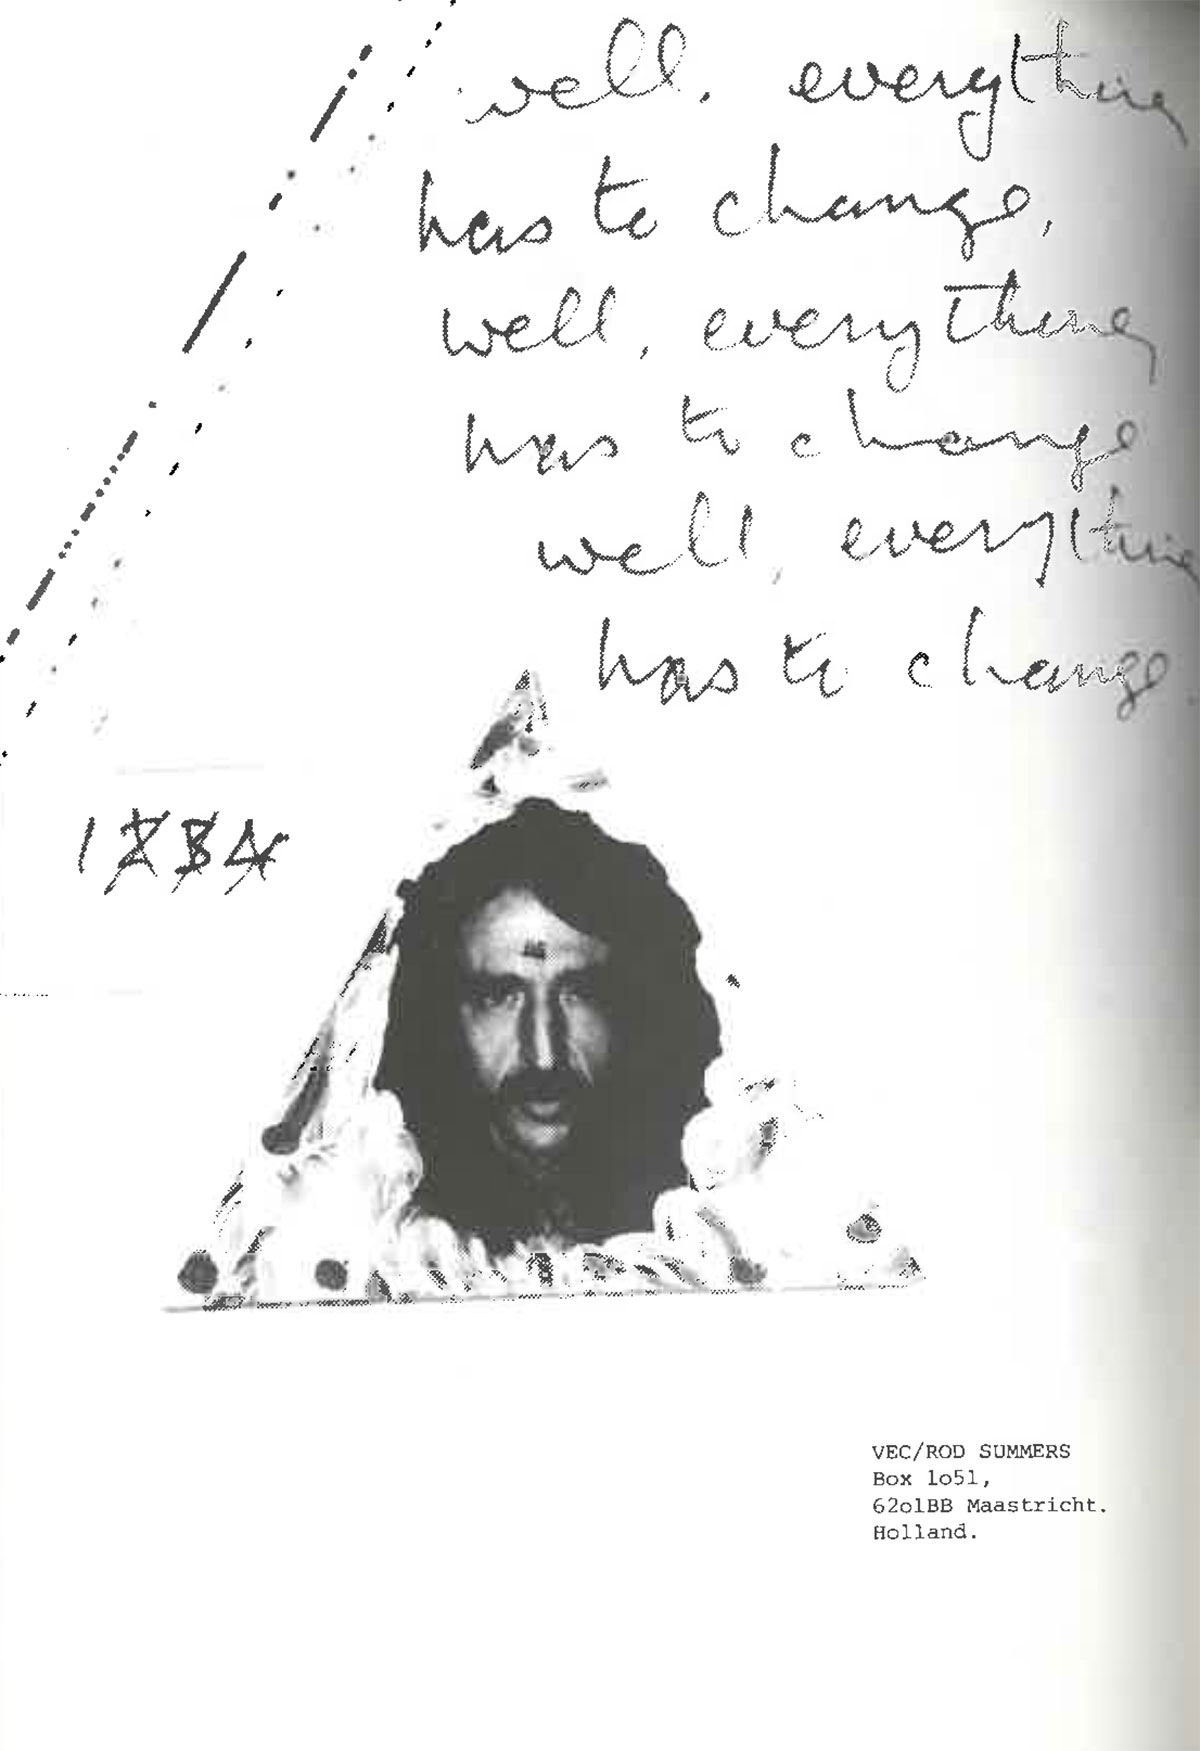 well, everything
has to change,
well, everything
has to change
well, everything
has to change.
1234
VEC/ROD SUMMERS
Box 1o51,
62o1BB Maastricht.
Holland.